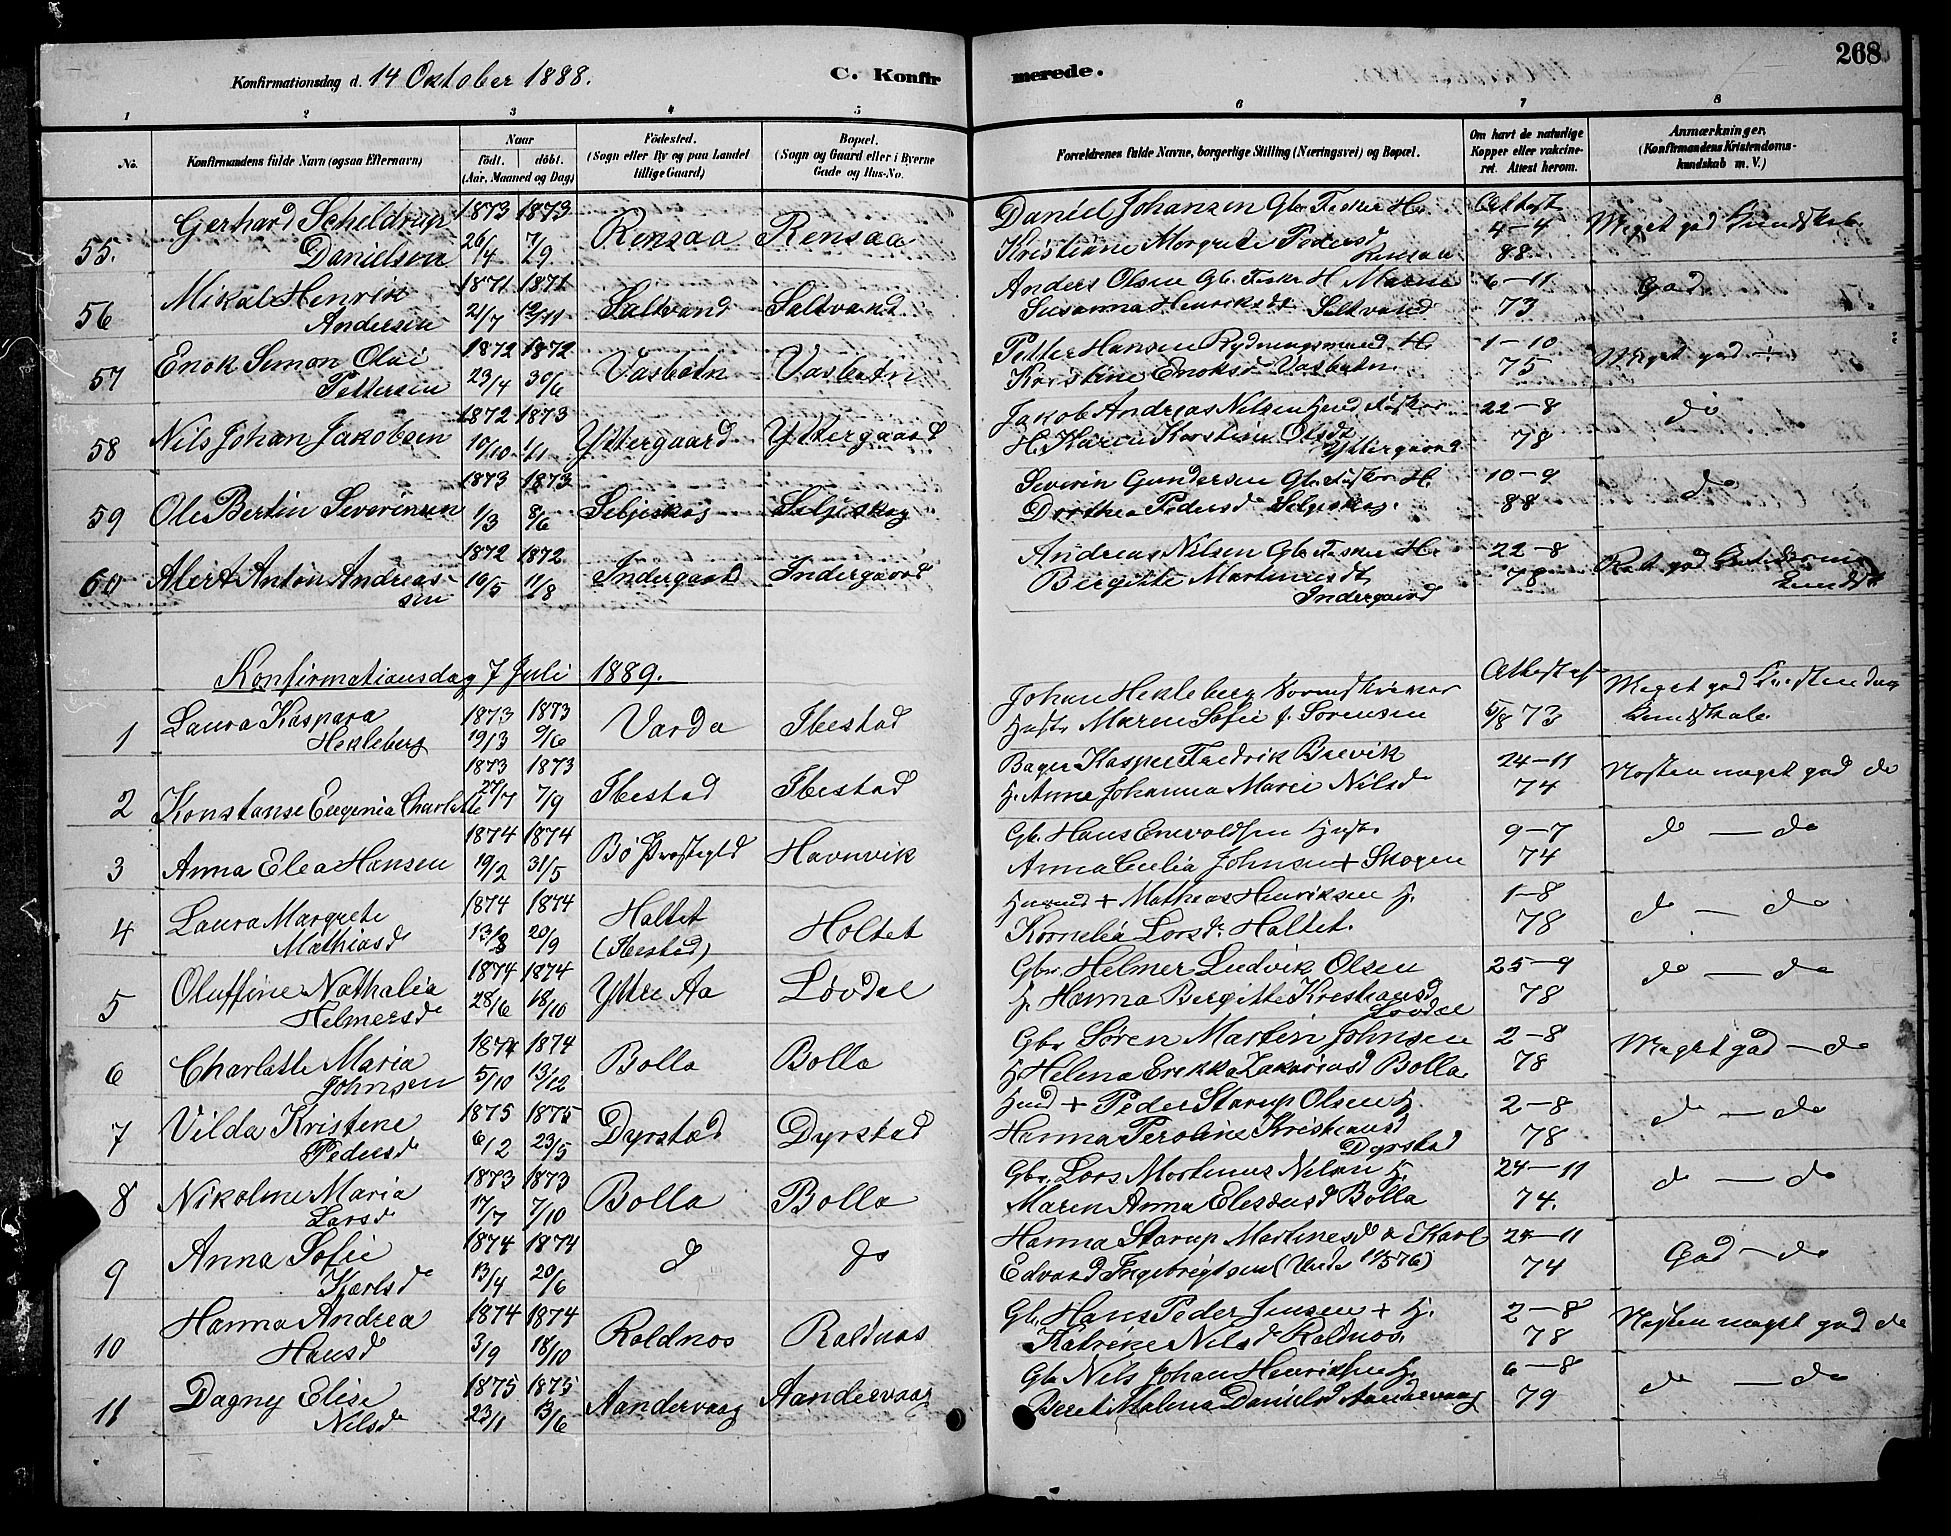 268
Konfirmationsdag d. 14 Oktober 1888.
C. Konfirmerede.
1 2 3 4 5 6 7 8
No. Konfirmandens fulde Navn (ogsaa Efternavn) Naar født. døbt. (Aar, Maaned og Dag) Fødested. (Sogn eller By og paa Landet tillige Gaard) Bopæl. (Sogn og Gaard eller i Byerne Gade og Hus-No. Forældrenes fulde Navne, borgerlige Stilling (Næringsvei) og Bopæl. Om havt de naturlige Kopper eller vakcineret. Attest herom. Anmærkninger. (Konfirmandens Kristendomskundskab m. V.)
55. Gerhard Scheldrup Danielsen 1873 26/4 1873 7/9 Rensaa Rensaa Daniel Johansen Gbr. Fisker H. Kristiane Margrete Pedersd Rensaa Attest 4-4 88 Meget god Kundskab
56 Mikal Henrik Andersen 1871 2/7 1871 12/11 Saltvand Saltvand Anders Olsen Gb. Fisker H. Maren Susanna Henriksdt Saltvand 6-11 73 God
57 Enok Simon Olai Pettersen 1872 23/4 1872 30/6 Vasbotn Vasbotn Petter Hansen Rydningsmand H. Karstine Enoksd Vasbotn 1-10 75 Meget god
58 Nils Johan Jakobsen 1872 10/10 1873 1/1 Yttergaard Yttergaard Jakob Andreas Nilsen Hmd Fisker H. Karen Karstine Olsdt Yttergaard 22-8 78 do
59 Ole Bertin Severinsen 1873 1/3 1873 8/6 Seljeskog Seljeskog Severin Gundersen Gb. Fisker H. Dorthea Pedersd Seljeskog. 10-9 88 do
60 Alert Anton Andreassen 1872 16/5 1872 11/8 Indergaard Indergaard Andreas Nilsen Gb. Fisker H. Bergitte Martinusdt Indergaard 22-8 78 Ret god
Konfirmationsdag 7 Juli 1889.
1 Laura Kaspara Hekleberg 1873 19/3 1873 9/6 Varda Ibestad Johan Hekleberg Hustr Maren Sofie f. Sørensen Attest af 5/8 73 Meget god Kristendoms Kundskab.
2 Konstanse Eugenia Charlotte 1873 27/7 1873 7/9 Ibestad Ibestad Bager Kasper Fredrik Brevik H. Anne Johanna Marie Nilsd 24-11 74 Næsten meget god do
3 Anna Elea Hansen 1874 19/2 1874 31/5 Bø Præstegld Havnvik Gb. Hans Enevoldsen Hustr. Anna Cecilia Johnsen + Skogen 9-7 74 do — do
4 Laura Margrete Mathiasd 1874 13/8 1874 20/9 Holtet (Ibestad) Holtet Husmd + Mathias Henriksen H. Kornelia Larsd. Holtet. 1-8 78 do — do
5 Oluffine Nathalia Helmersd 1874 28/6 1874 18/10 Ytre Aa Løvdal Gbr. Helmer Ludvik Olsen H. Hanna Bergitte Kristiansd Løvdal 25-9 78 do — do
6 Charlotte Maria Johnsen 1874 5/10 1874 13/12 Bolla Bolla Gbr Søren Martin Johnsen H. Helena Erikka Zakariasd Bolla 2-8 78 Meget god — do
7 Vilda Kristine Pedersd 1875 6/2 1875 23/5 Dyrstad Dyrstad Hmd + Peder Starup Olsen H. Hanna Peroline Kristiansd Dyrstad 2-8 78 do — do
8 Nikoline Maria Larsd 1873 17/7 1873 7/10 Bolla Bolla Gbr. Lars Martinus Nilsen H. Maren Anna Eleseusd Bolla 24-11 74. do — do
9 Anna Sofie Karlsd 1874 13/4 1874 20/6 do do Hanna Starup Martinesd & Karl Edvard Ingebrigtsen 24-11 74 God — do
10 Hanna Andrea Hansd 1874 3/9 1874 18/10 Roldnos Roldnos Gb. Hans Peder Jensen + H. Katrine Nilsd Roldnos. 2-8 78 Næsten meget god do
11 Dagny Elise Nilsd 1875 23/1 1875 13/6 Aandervaag Aandervaag Gb. Nils Johan Henriksen H. Beret Malena Danielsd Aandervaag 6-8 79 do — do